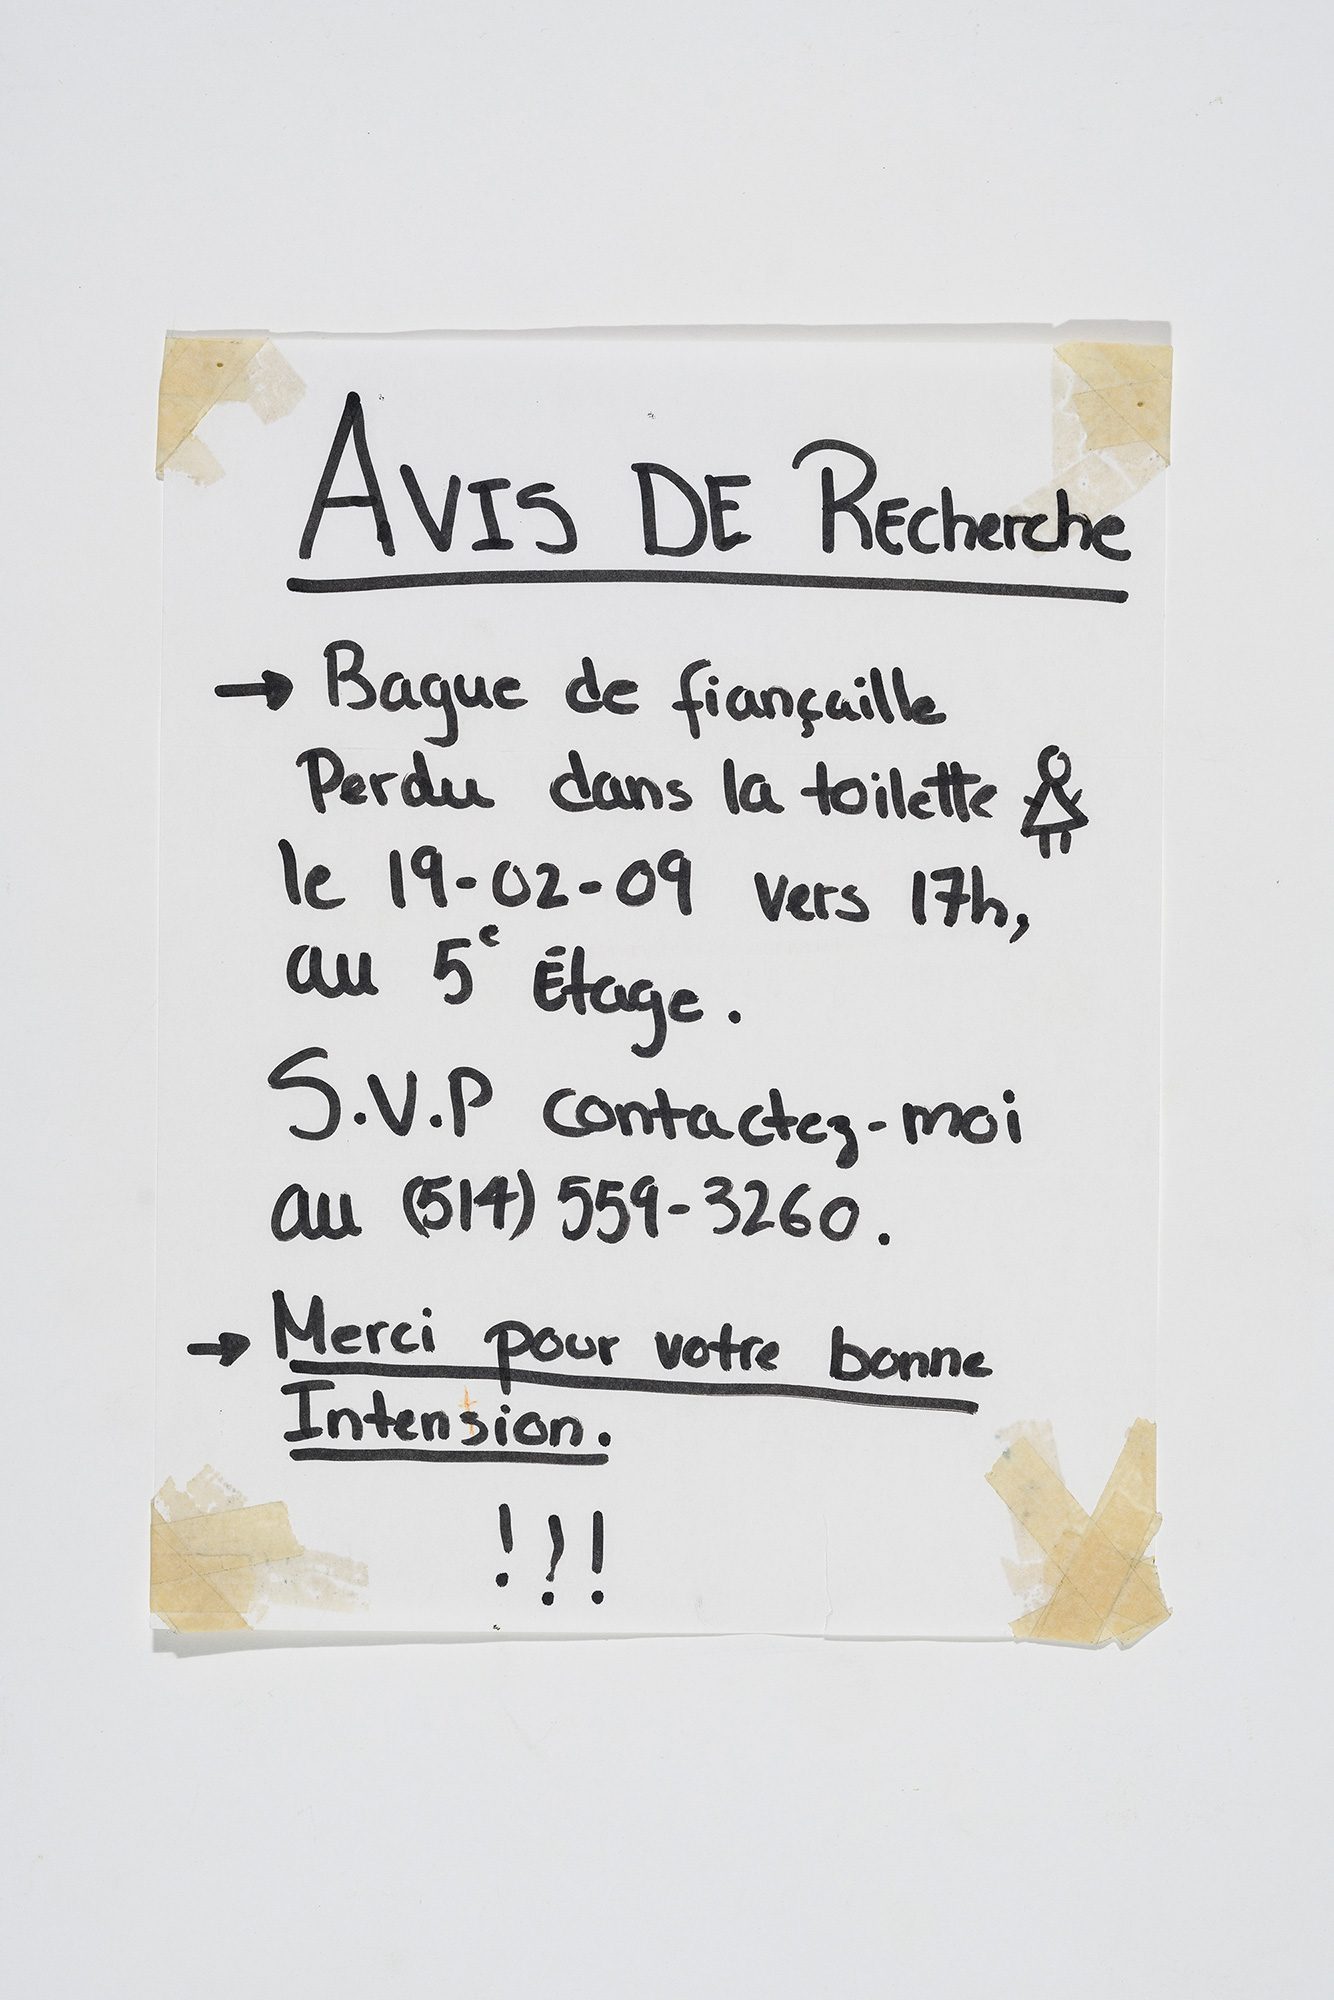 AVIS DE REcherche
→ Bague de fiançaille
Perdu dans la toilette
le 19-02-09 vers 17h,
au 5e Étage.
S.V.P contactez-moi
au (514) 559-3260.
→ Merci pour votre bonne
Intension.
!?!